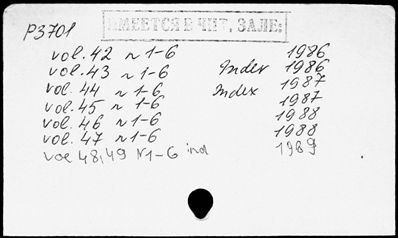 P3701
ИМЕЕТСЯ В ЧИТ. ЗАЛЕ:
vol. 42 n 1-6 1986
vol. 43 n 1-6 Index 1986
vol. 44 n 1-6 Index 1987
vol. 45 n 1-6 1987
vol. 46 n 1-6 1988
vol. 47 n 1-6 1988
vol 48,49 N1-6 ind 1989